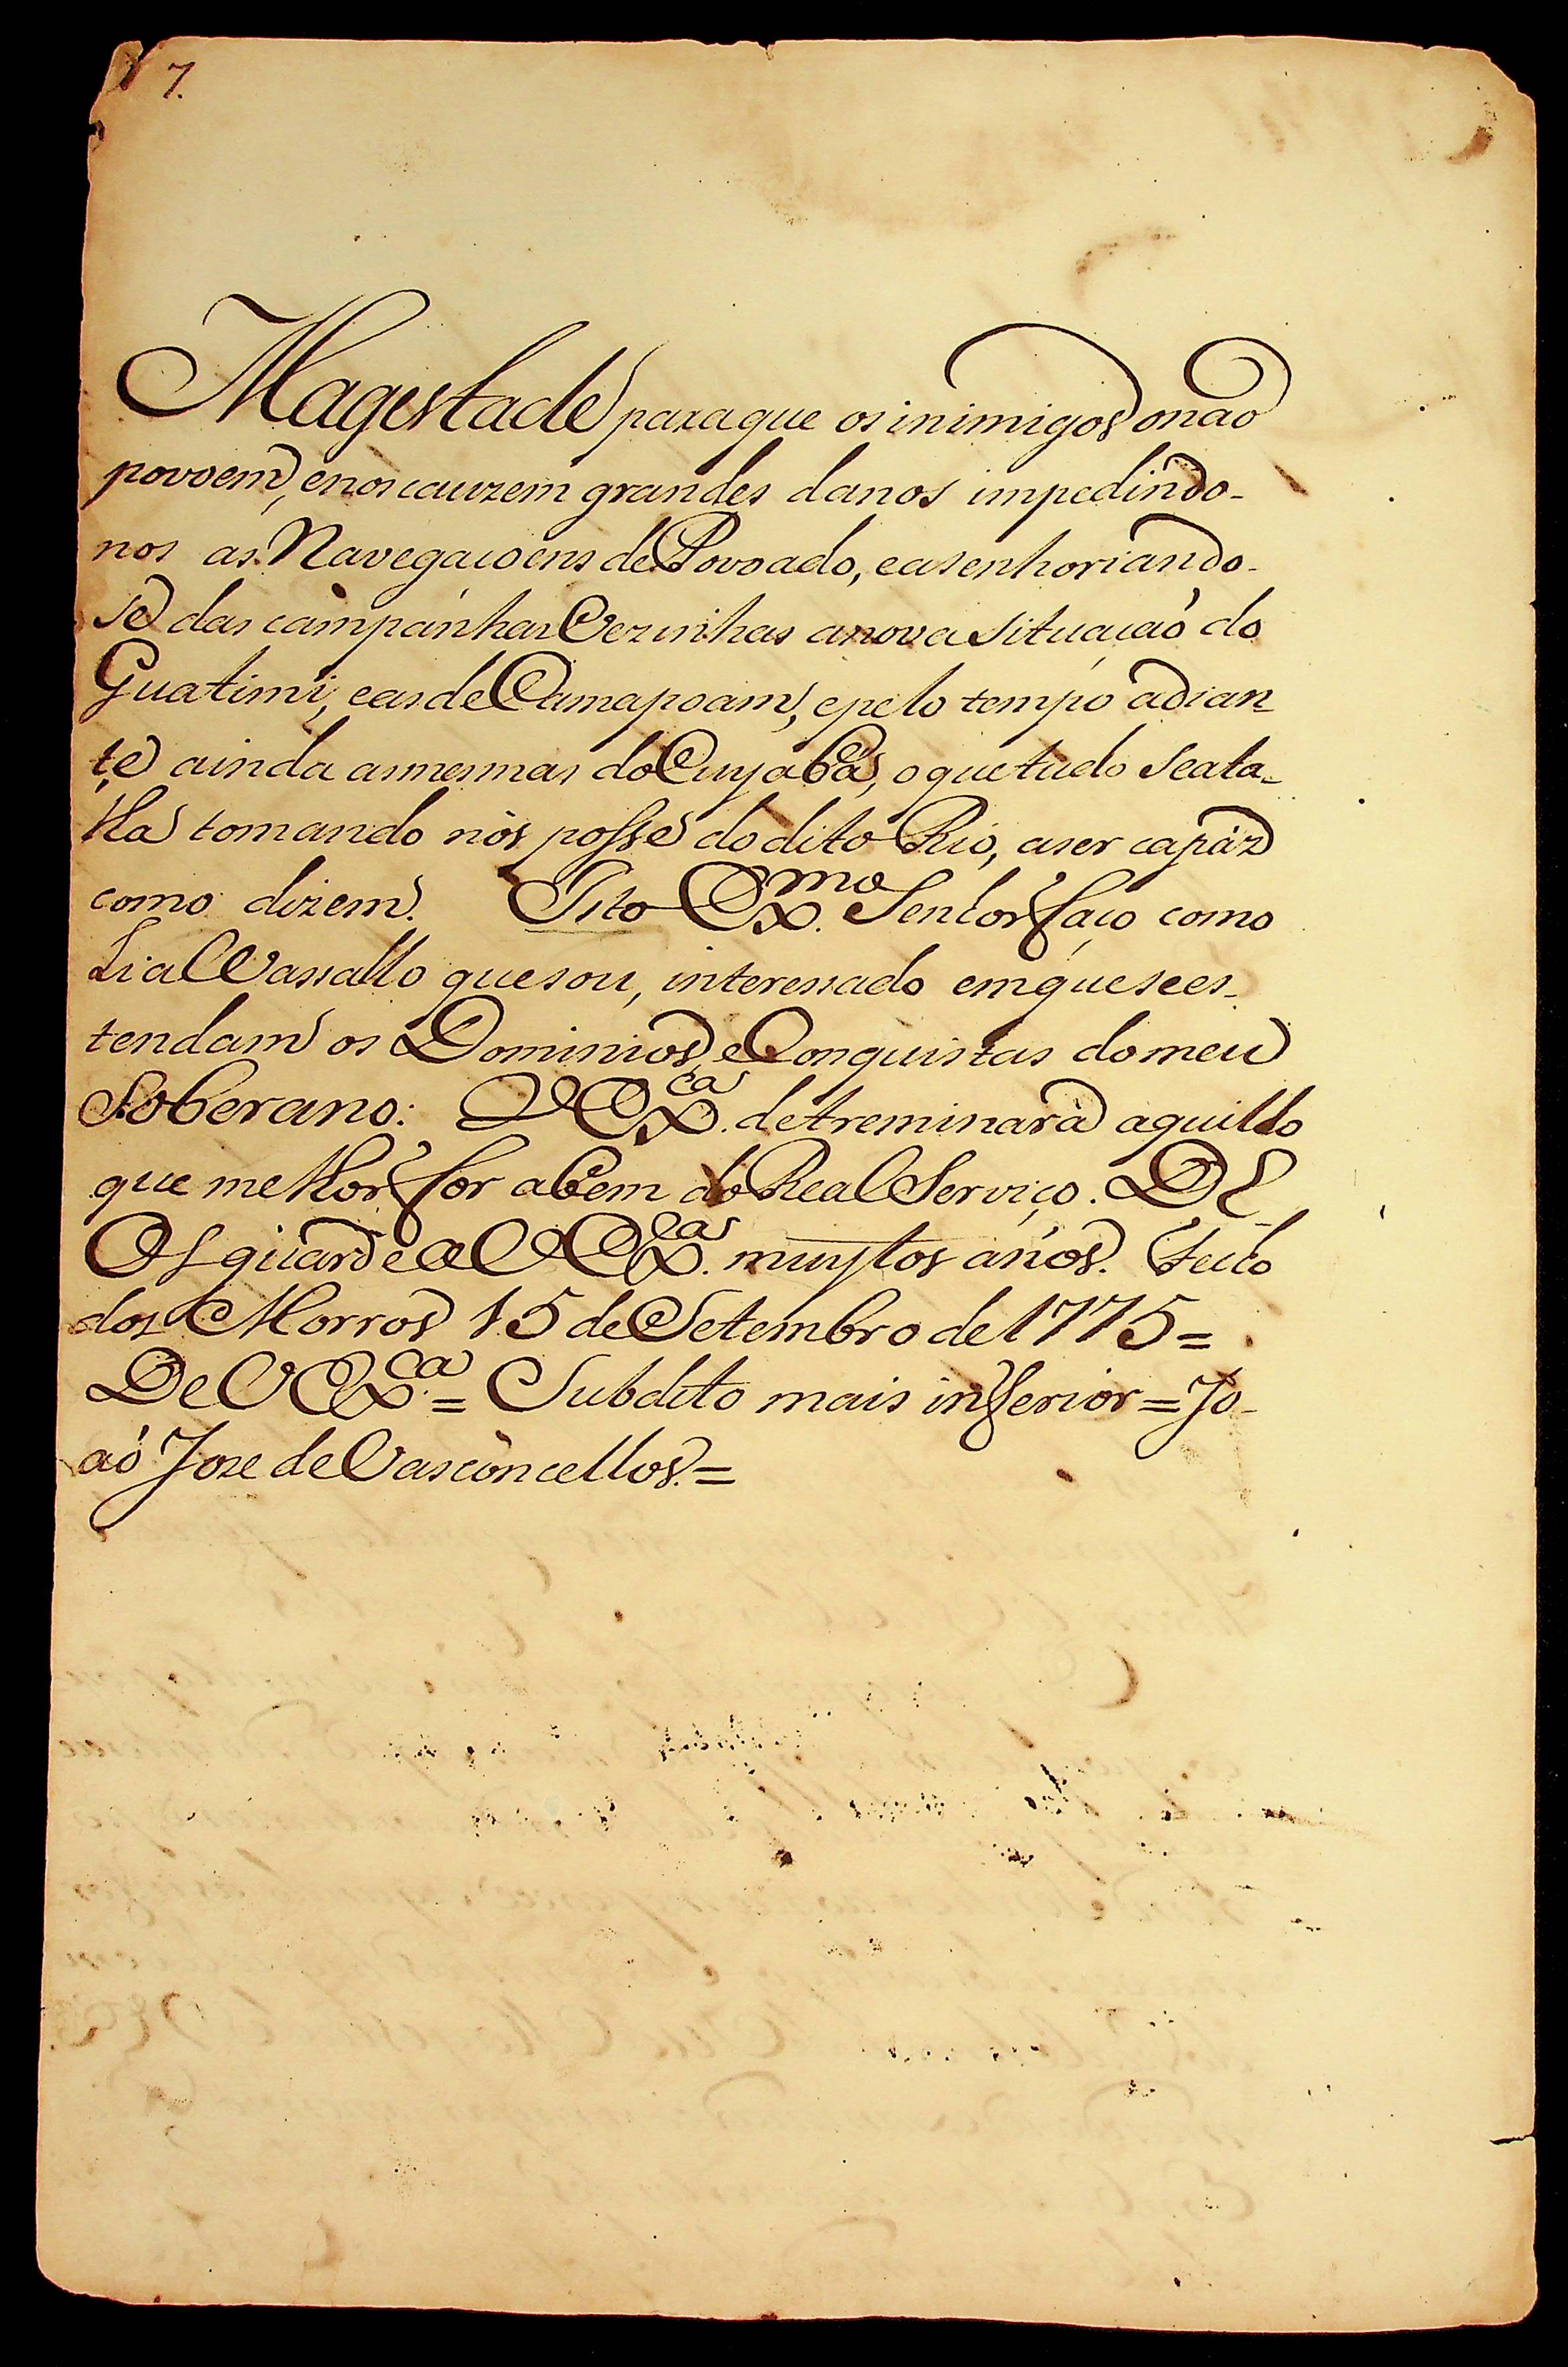 7.
Magestade para que os inimigos o naõ
povoem, enos cauzem grandes danos impedindo-
nos as Navegaçoens de Povoado, easenhoriando-
se das campánhas Vezinhas a nova situaçaõ do
Guatimi, eas de Camapoam, epelo tempo adian-
te ainda asmesmas do Cuyabá, oque tudo seata-
lha tomando nós posse do dito Rio, aser capáz
como dizem. Isto Exmo. Senhor faço como
Lial Vassallo que sou, interessado emque sees-
tendam os Dominios, e Conquistas domeu
Soberano: VExca. detreminará aquillo
que melhor for abem do Real Serviço. D.s
G.e guarde a VExca. muytos anos.
dos Morros 15 de Setembro de 1775 =
De VExca. = Subdito mais inferior = Jo-
aó Joze de Vasconcellos. =